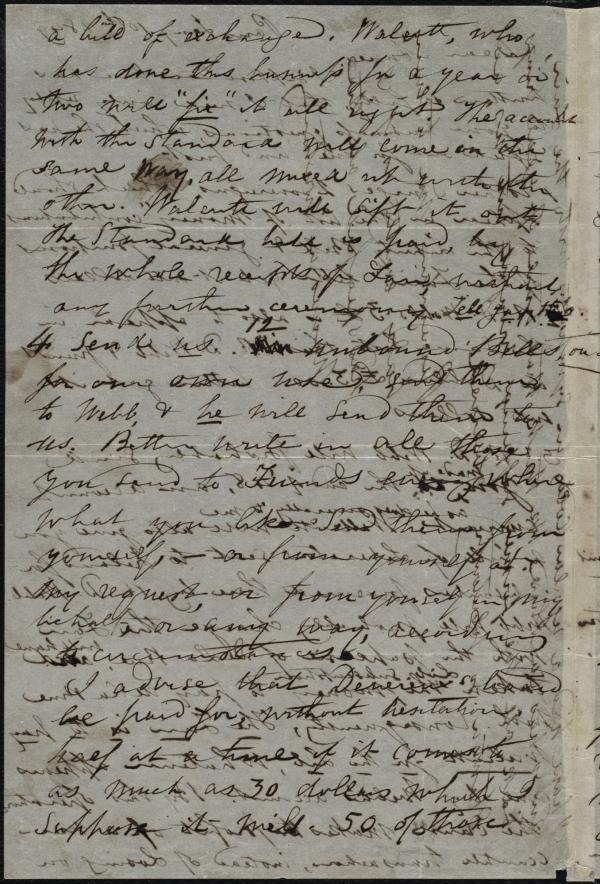 a bill of exchange. Walcutt, who
has done this business for a year or
two will "fix" it all right. The account
with the Standard will come in the
same way, all mixed up with the
other. Walcutt will sift it out
The Standard here is paid by
the whole receipts of
any further ceremony. Tell
4 Send us. 12 unbound Bells
for our own use; send them
to Webb, & he will send them to
us. Better write in all those
you send to Friends everywhere
what you like. Send them from
yourself, — or from yourself at
my request, or from yourself in my
behalf or any way, according
to circumstances.
I advise that should
be paid for, without hesitation,
half at a time if it comes to
as much as 30 dollars which I
suppose it will 50 of those